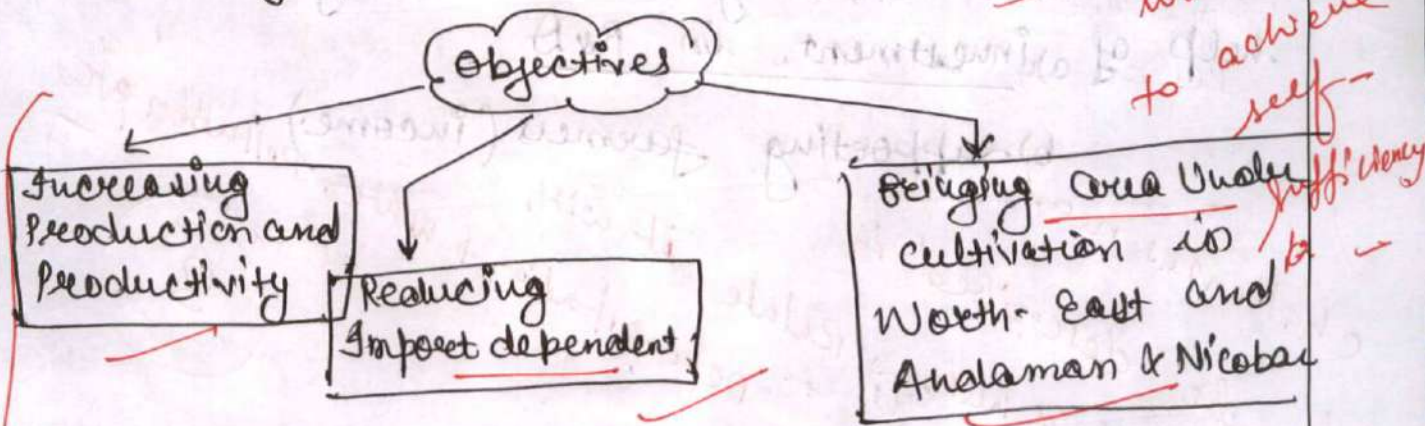 Objectives
Increasing
Production and
Productivity
Reducing
Import dependent
Bringing area Under
cultivation in
North-East and
Andaman & Nicobar
to achieve
self-
sufficiency